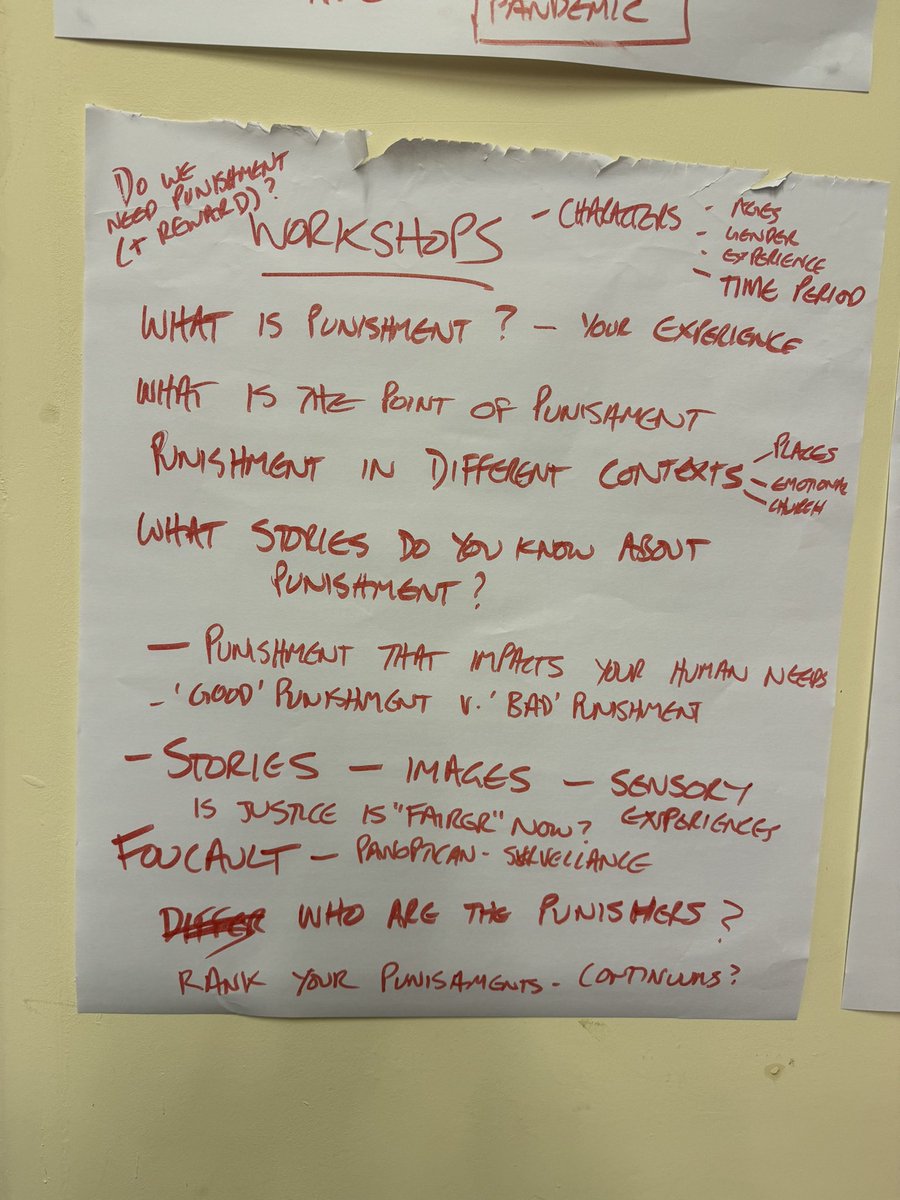 PANDEMIC
DO WE
NEED PUNISHMENT
(+ REWARD)?
WORKSHOPS
- CHARACTERS - AGES
- GENDER
- EXPERIENCE
- TIME PERIOD
WHAT IS PUNISHMENT? - YOUR EXPERIENCE
WHAT IS THE POINT OF PUNISHMENT
PUNISHMENT IN DIFFERENT CONTEXTS - PLACES
- EMOTIONAL
- CHURCH
WHAT STORIES DO YOU KNOW ABOUT
PUNISHMENT?
- PUNISHMENT THAT IMPACTS YOUR HUMAN NEEDS
- 'GOOD' PUNISHMENT V. 'BAD' PUNISHMENT
- STORIES - IMAGES - SENSORY
EXPERIENCES
IS JUSTICE IS "FAIRER" NOW?
FOUCAULT - PANOPTICAN - SURVELLANCE
WHO ARE THE PUNISHERS?
RANK YOUR PUNISHMENTS - CONTINUUMS?